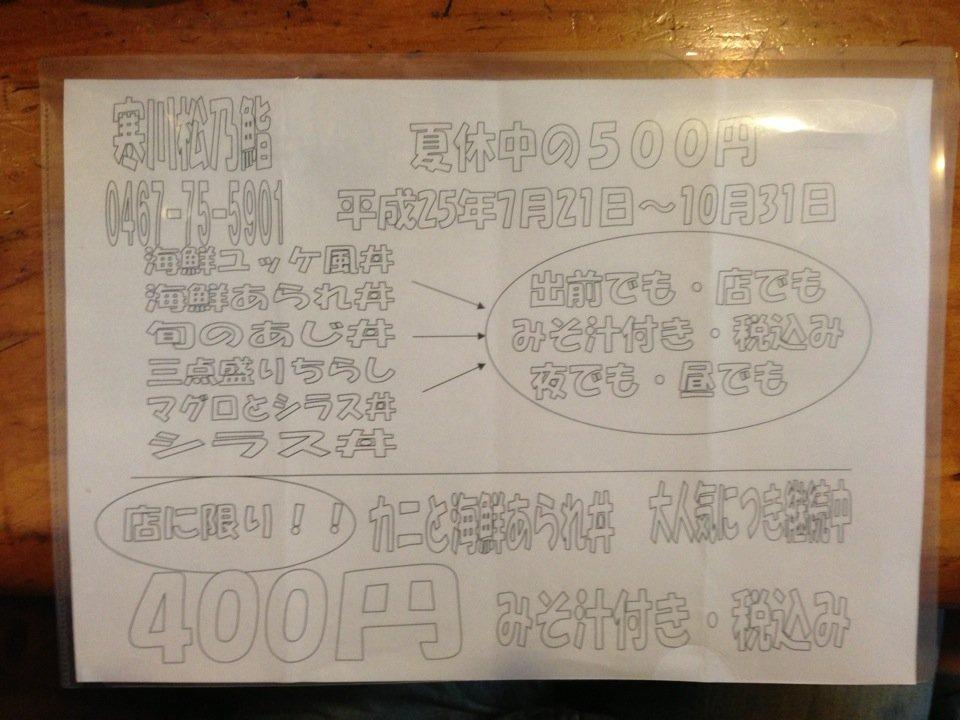 寒川松乃鮨
0467-75-5901
夏休中の５００円
平成25年7月21日～10月31日
海鮮ユッケ風丼
海鮮あられ丼
旬のあじ丼
三点盛りちらし
マグロとシラス丼
シラス丼
出前でも・店でも
みそ汁付き・税込み
夜でも・昼でも
店に限り！！
カニと海鮮あられ丼
大人気につき継続中
400円
みそ汁付き・税込み